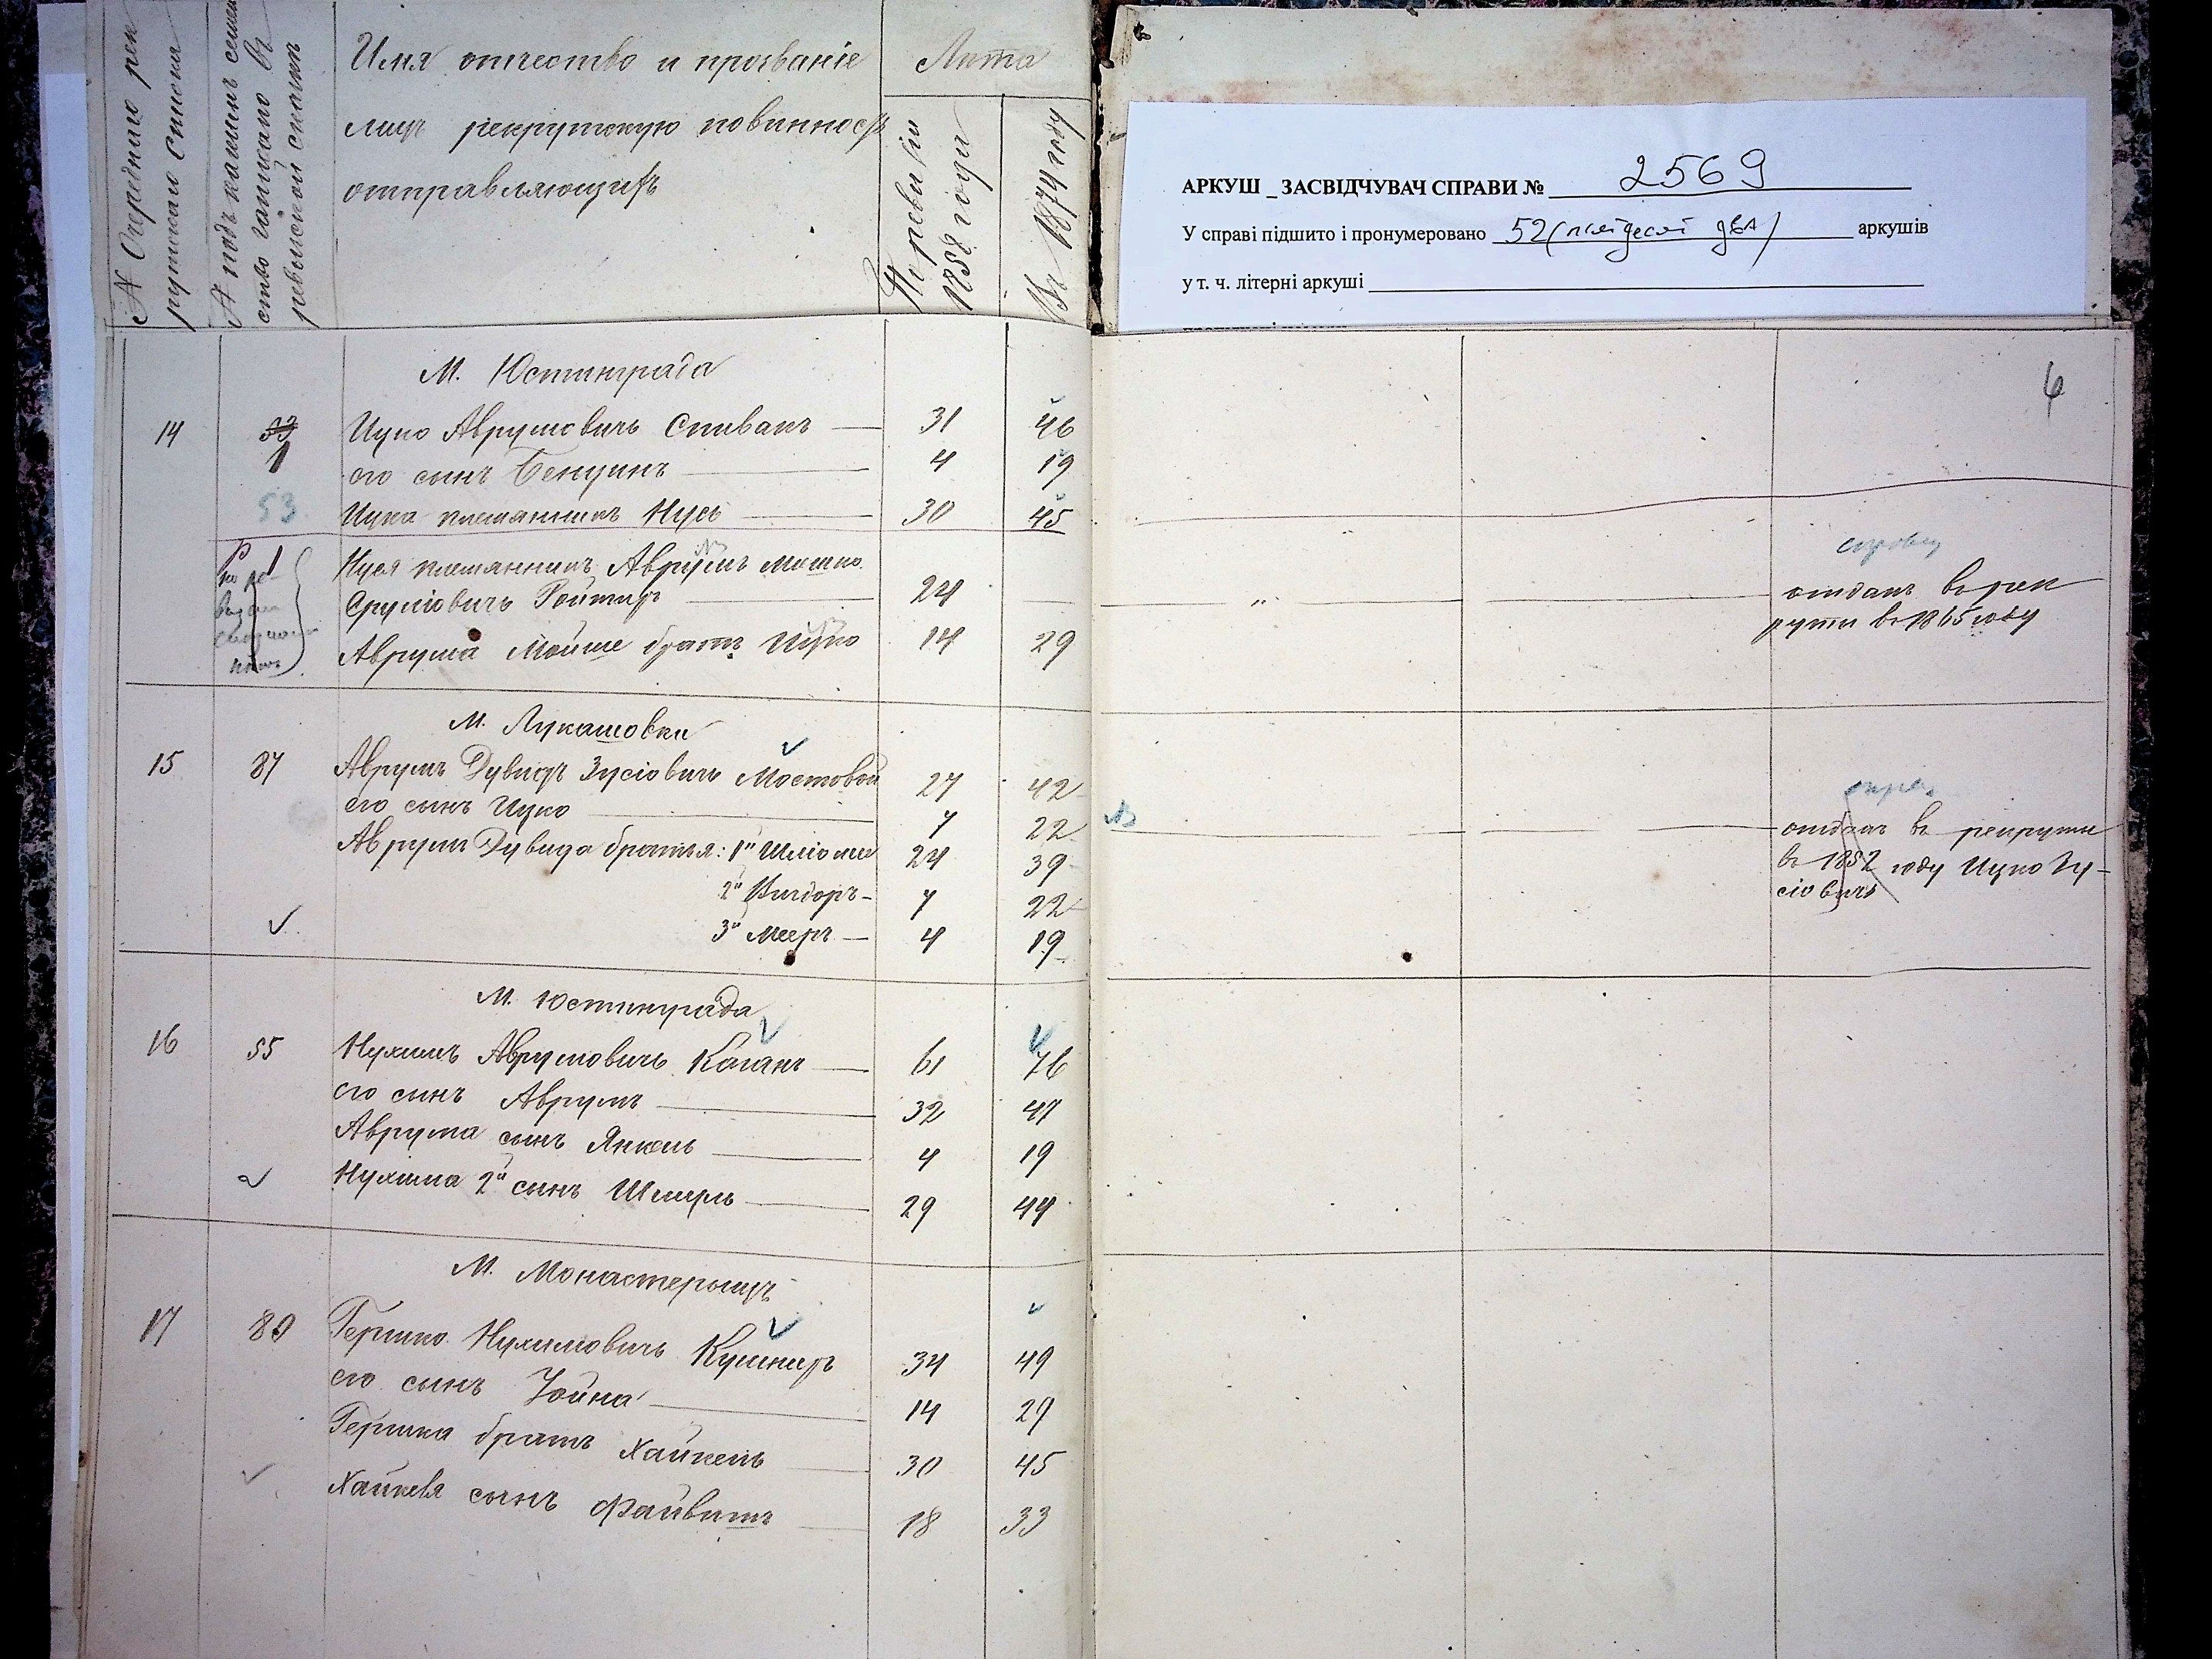 № Очереднаго рек
рутскаго списка
№ подъ какимъ семей
ство записано въ
ревизской сказкѣ
Имя отчество и прозваніе
лицъ рекрутскую повинность
отправляющихъ
Лѣта
По ревизіи
1858 года
Въ 1874 году
АРКУШ _ ЗАСВІДЧУВАЧ СПРАВИ № 2569
У справі підшито і пронумеровано 52 (пятдесят два) аркушів
у т. ч. літерні аркуші
6
М. Юстинграда
14 53 Ицко Аврумовичъ Спивакъ 31 46
1 его сынъ Бенционъ 4 19
53 Ицка племянникъ Нусь 30 45
1 Нуся племянникъ Аврумъ Мошко
Сруліовичъ Ройтиръ 24 "
отданъ въ рек
руты въ 1865 году
Аврума Мойше братъ Ицко 14 29
М. Лукашовки
15 87 Аврумъ Дувидъ Зусіовичъ Мостовой 27 42
его сынъ Ицко 7 22
Аврумъ Дувида братья: 1й Шліома 24 39
2й Вигдоръ 7 22
3й Мееръ 4 19
отданъ въ рекруты
въ 1852 году Ицко Зу-
сіовичъ
М. Юстинграда
16 55 Нухимъ Аврумовичъ Коганъ 61 76
его сынъ Аврумъ 32 47
Аврума сынъ Янкель 4 19
Нухима 2й сынъ Шмерль 29 44
М. Монастерыщъ
17 89 Гершко Нухимовичъ Кушниръ 34 49
его сынъ Іойна 14 29
Гершка братъ Хайкель 30 45
Хайкеля сынъ Файвишъ 18 33